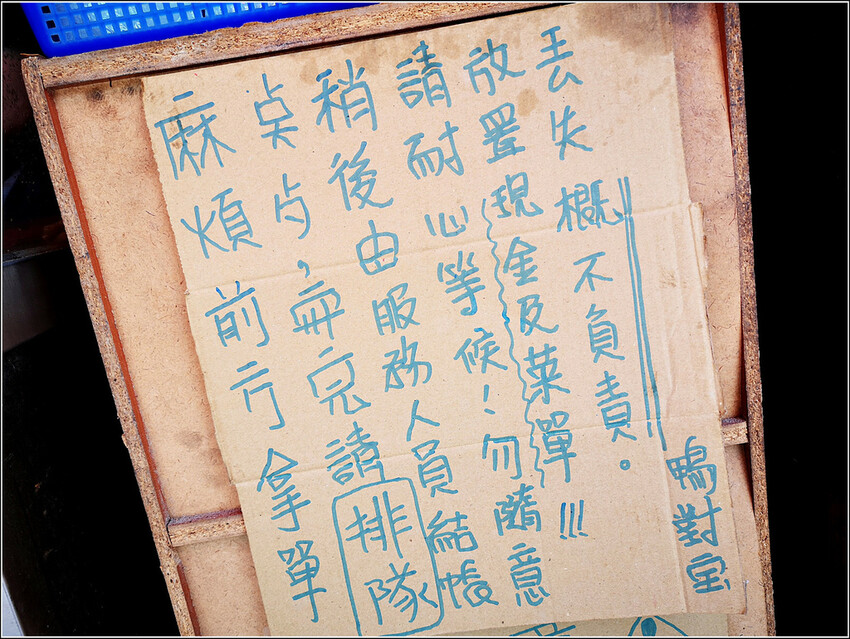 麻煩前方拿單
奌,完請排隊
稍後由服務人員結帳
請耐心等候!勿隨意
放置現金及菜單!!!
丟失概不負責。
鴨對宝